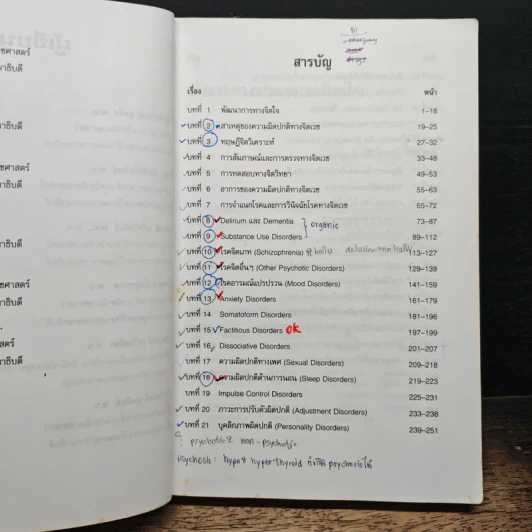 สารบัญ
เรื่อง หน้า
บทที่ 1 พัฒนาการทางจิตใจ 1-18
บทที่ 2 สาเหตุของความผิดปกติทางจิตเวช 19-25
บทที่ 3 ทฤษฎีจิตวิเคราะห์ 27-32
บทที่ 4 การสัมภาษณ์และการตรวจทางจิตเวช 33-48
บทที่ 5 การทดสอบทางจิตวิทยา 49-53
บทที่ 6 อาการของความผิดปกติทางจิตเวช 55-63
บทที่ 7 การจำแนกโรคและการวินิจฉัยโรคทางจิตเวช 65-72
บทที่ 8 Delirium และ Dementia 73-87
organic
บทที่ 9 Substance Use Disorders 89-112
บทที่ 10 โรคจิตเภท (Schizophrenia) 113-127
บทที่ 11 โรคจิตอื่นๆ (Other Psychotic Disorders) 129-139
บทที่ 12 โรคอารมณ์แปรปรวน (Mood Disorders) 141-159
บทที่ 13 Anxiety Disorders 161-179
บทที่ 14 Somatoform Disorders 181-196
บทที่ 15 Factitious Disorders OK 197-199
บทที่ 16 Dissociative Disorders 201-207
บทที่ 17 ความผิดปกติทางเพศ (Sexual Disorders) 209-218
บทที่ 18 ความผิดปกติด้านการนอน (Sleep Disorders) 219-223
บทที่ 19 Impulse Control Disorders 225-231
บทที่ 20 ภาวะการปรับตัวผิดปกติ (Adjustment Disorders) 233-238
บทที่ 21 บุคลิกภาพผิดปกติ (Personality Disorders) 239-251
psychotic non-psychotic
psychosis: hypo hyperthyroid